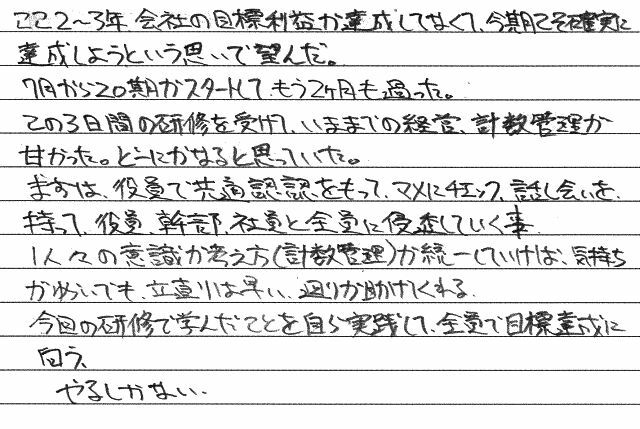 ここ2〜3年、会社の目標利益が達成してなくて、今期こそ確実に
達成しようという思いで望んだ。
7月から20期がスタートしてもう2ヶ月も過った。
この3日間の研修を受けて、いままでの経営、計数管理が
甘かった。どうにかなると思っていた。
まずは、役員で共通認認をもって、マメにチェック、話し会いを、
持って、役員、幹部、社員と全員に浸透していく事
1人々の意識が考え方(計数管理)が統一していけば、気持ち
がゆらいでも、立直りは早い、廻りが助けてくれる。
今回の研修で学んだことを自ら実践して、全員で目標達成に
向う、
やるしかない.